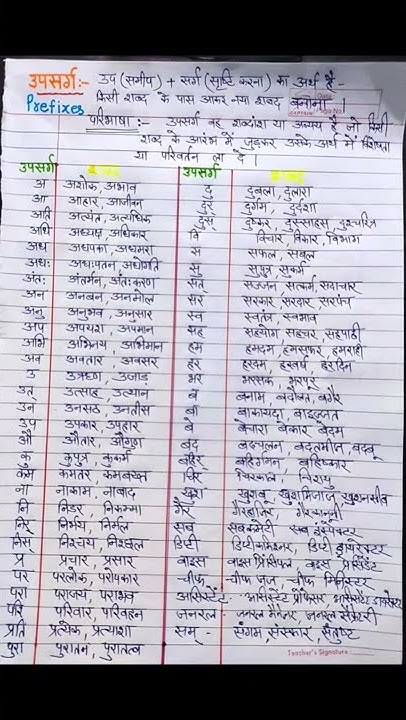 उपसर्ग:- उप (समीप) + सर्ग (सृष्टि करना) का अर्थ है -
Prefixes किसी शब्द के पास आकर नया शब्द बनाना ।
परिभाषा :- उपसर्ग वह शब्दांश या अव्यय है जो किसी
शब्द के आरंभ में जुड़कर उसके अर्थ में विशेषता
या परिवर्तन ला दे ।
उपसर्ग शब्द उपसर्ग शब्द
अ अशोक, अभाव दु दुबला, दुलारा
आ आहार, आजीवन दुर् दुर्गम, दुर्दशा
अति अत्यंत, अत्यधिक दुस् दुष्कर, दुस्साहस, दुश्चरित्र
अधि अध्यक्ष, अधिकार वि विचार, विकार, विभाग
अध अधपका, अधमरा स सफल, सबल
अधः अधःपतन, अधोगति सु सुपुत्र, सुकर्म
अंतः अंतर्मन, अंतःकरण सत् सज्जन, सत्कर्म, सदाचार
अन अनबन, अनमोल सर सरकार, सरदार, सरपंच
अनु अनुभव, अनुसार स्व स्वतंत्र, स्वभाव
अप अपयश, अपमान सह सहयोग, सहचर, सहपाठी
अभि अभिनय, अभिमान हम हमदम, हमसफर, हमराही
अव अवतार, अवसर हर हरदम, हरवर्ष, हरदिन
उ उऋण, उजाड़ भर भरसक, भरपूर
उत् उत्साह, उत्थान ब बनाम, बदौलत, बगैर
उन उनसठ, उनतीस बा बाकायदा, बाइज्जत
उप उपकार, उपहार बे बेचारा, बेकार, बेदम
औ औतार, औगुण बद बदचलन, बदतमीज, बदबू
कु कुपुत्र, कुकर्म बहिर् बहिर्गमन, बहिष्कार
कम कमतर, कमबख्त चिर चिरकाल, चिरायु
ना नाकाम, नाबाद खुश खुशबू, खुशमिजाज, खुशनसीब
नि निडर, निकम्मा गैर गैरहाजिर, गैरकानूनी
निर् निर्भय, निर्मल सब सबकमेटी सब इंस्पेक्टर
निस् निश्चय, निश्छल डिप्टी डिप्टीकमिश्नर, डिप्टी डायरेक्टर
प्र प्रचार, प्रसार वाइस वाइस प्रिंसिपल, वाइस प्रेसिडेंट
पर परलोक, परोपकार चीफ चीफ जज, चीफ मिनिस्टर
परा पराजय, पराभव असिस्टेंट असिस्टेंट प्रोफेसर, असिस्टेंट डायरेक्टर
परि परिवार, परिवहन जनरल जनरल मैनेजर, जनरल सेक्रेटरी
प्रति प्रत्येक, प्रत्याशा सम् - संगम, संस्कार, संतुष्ट
पुरा पुरातन, पुरातत्व
Teacher's Signature :